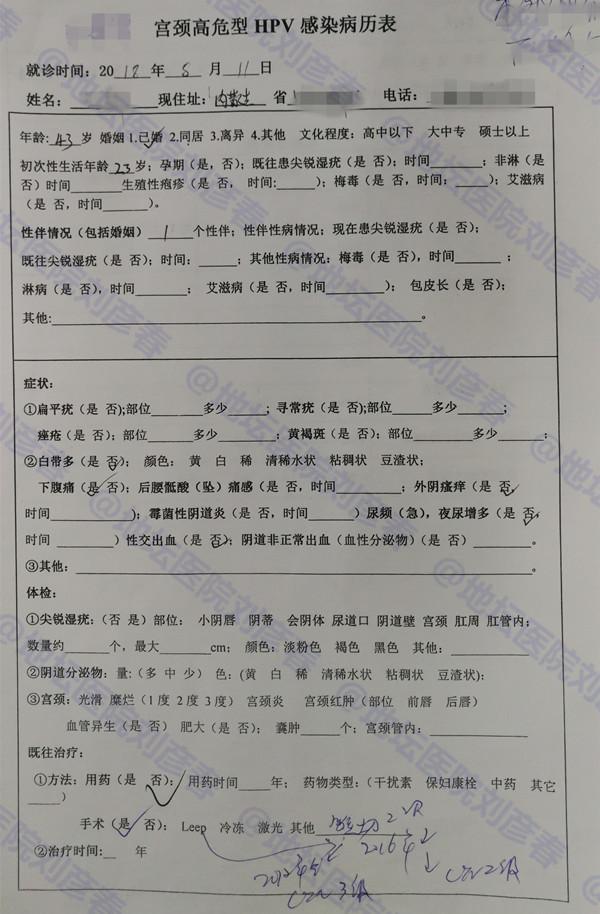 宫颈高危型 HPV 感染病历表
就诊时间：2017年8月11日
姓名：现住址：内蒙古 省 电话：
年龄：43岁 婚姻 1.已婚 2.同居 3.离异 4.其他 文化程度：高中以下 大中专 硕士以上
初次性生活年龄23岁；孕期（是，否）；既往患尖锐湿疣（是 否）；时间______；非淋（是
否）时间______生殖性疱疹（是 否，时间：_____）；梅毒（是 否，时间：____）；艾滋病
（是 否，时间______）。
性伴情况（包括婚姻）1个性伴；性伴性病情况；现在患尖锐湿疣（是 否）；
既往尖锐湿疣（是 否）；时间：_____；其他性病情况：梅毒（是 否），时间______；
淋病（是 否），时间______； 艾滋病（是 否，时间______）； 包皮长（是 否）；
其他:______。
症状：
①扁平疣（是 否）;部位______多少_____；寻常疣（是 否）;部位_____多少______；
痤疮（是 否）；部位______多少______；黄褐斑（是 否）；部位______多少______；
②白带多（是 否）； 颜色： 黄 白 稀 清稀水状 粘稠状 豆渣状；
下腹痛（是 否）；后腰骶酸（坠）痛感（是 否，时间______；外阴瘙痒（是 否，
时间______）；霉菌性阴道炎（是 否，时间_____）尿频（急），夜尿增多（是 否，
时间______）性交出血（是 否）；阴道非正常出血（血性分泌物）（是 否）______。
③其他：______。
体检：
①尖锐湿疣：（否 是）部位： 小阴唇 阴蒂 会阴体 尿道口 阴道壁 宫颈 肛周 肛管内；
数量约_____个，最大______cm； 颜色：淡粉色 褐色 黑色 其他：______
②阴道分泌物：量：（多 中 少） 色：（黄 白 稀 清稀水状 粘稠状 豆渣状）；
③宫颈：光滑 糜烂（1 度 2 度 3 度） 宫颈炎 宫颈红肿（部位 前唇 后唇）
血管异生（是 否） 肥大（是 否）； 囊肿_____个；宫颈管内：______
既往治疗：
①方法：用药（是 否）；用药时间____年； 药物类型：（干扰素 保妇康栓 中药 其它
____）
手术（是 否）； Leep 冷冻 激光 其他 锥切2次
②治疗时间：__ 年 2016年
2012年 CIN2级
CIN3级
@地坛医院刘彦春